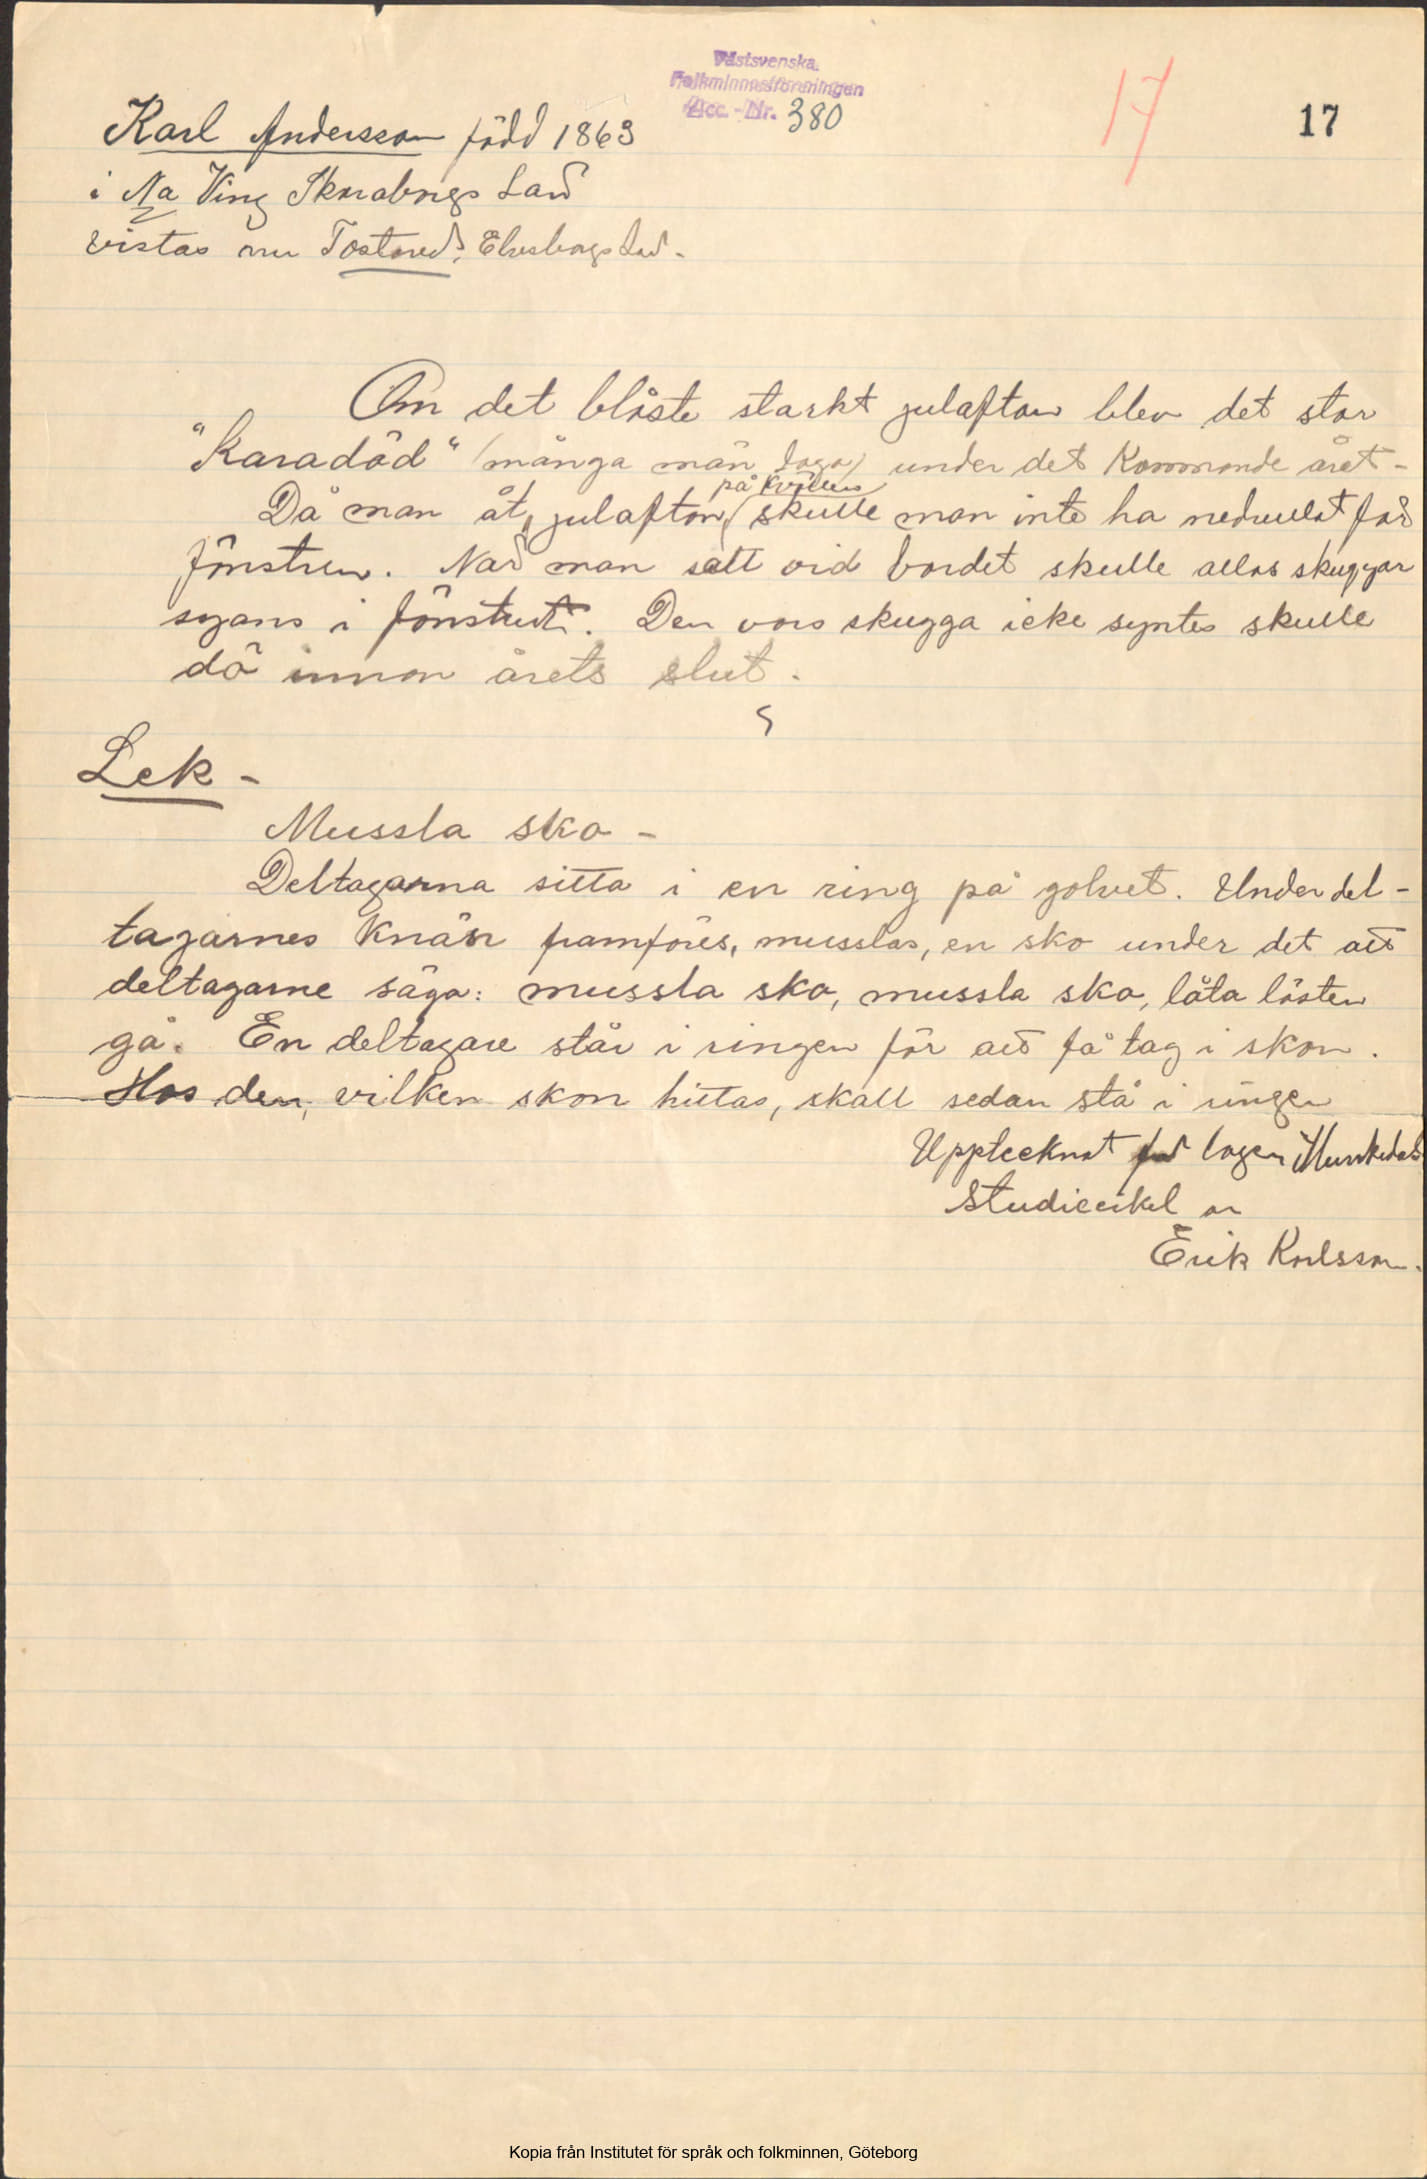 Västsvenska
Folkminnesföreningen
Acc.-Nr. 380
17
17
Karl Andersson född 1863
i Na Ving Skaraborgs Län
vistas nu Tostared, Elvsborgs Län.
Om det blåste starkt julafton blev det stor
"Karadöd" (många män dogo) under det kommande året.
på kvällen
Då man åt, julafton, skulle man inte ha nedrullat för
fönstren. När man satt vid bordet skulle allas skuggor
synas i fönstret. Den vars skugga icke syntes skulle
dö innan årets slut.
Lek -
Mussla sko -
Deltagarna sitta i en ring på golvet. Under del-
tagarnes knän framföres, musslas, en sko under det att
deltagarne säga: mussla sko, mussla sko, låta lästen
gå. En deltagare står i ringen för att få tag i skon.
Hos den, vilken skon hittas, skall sedan stå i ringen
Upptecknat för logen Munkedals
studiecirkel av
Erik Karlsson.
Kopia från Institutet för språk och folkminnen, Göteborg